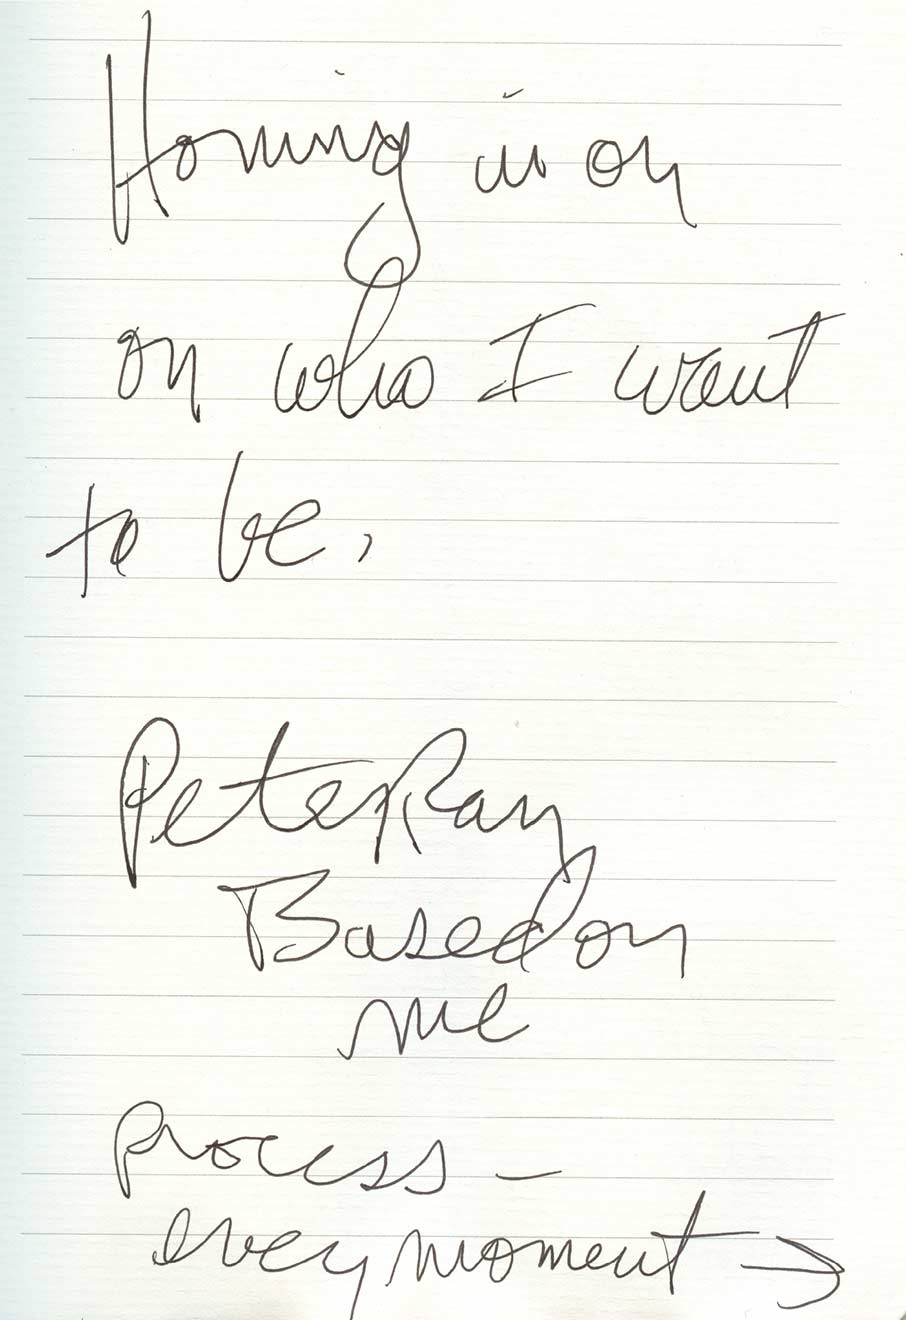 Homing in on
on who I want
to be,
Peter Ran
Based on
me
process –
every moment →